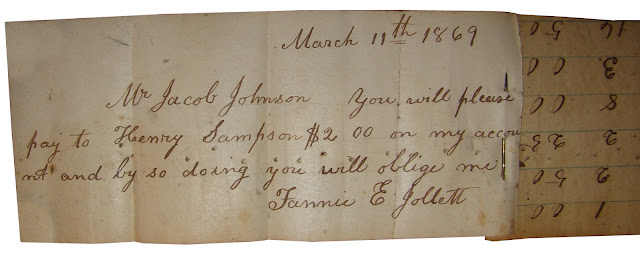 March 11th 1869
Mr Jacob Johnson You will please
pay to Henry Sampson $2 00 on my accou
nt and by so doing you will oblige me
Fannie E Jollett
1 00
2 50
2 25
8 00
3 00